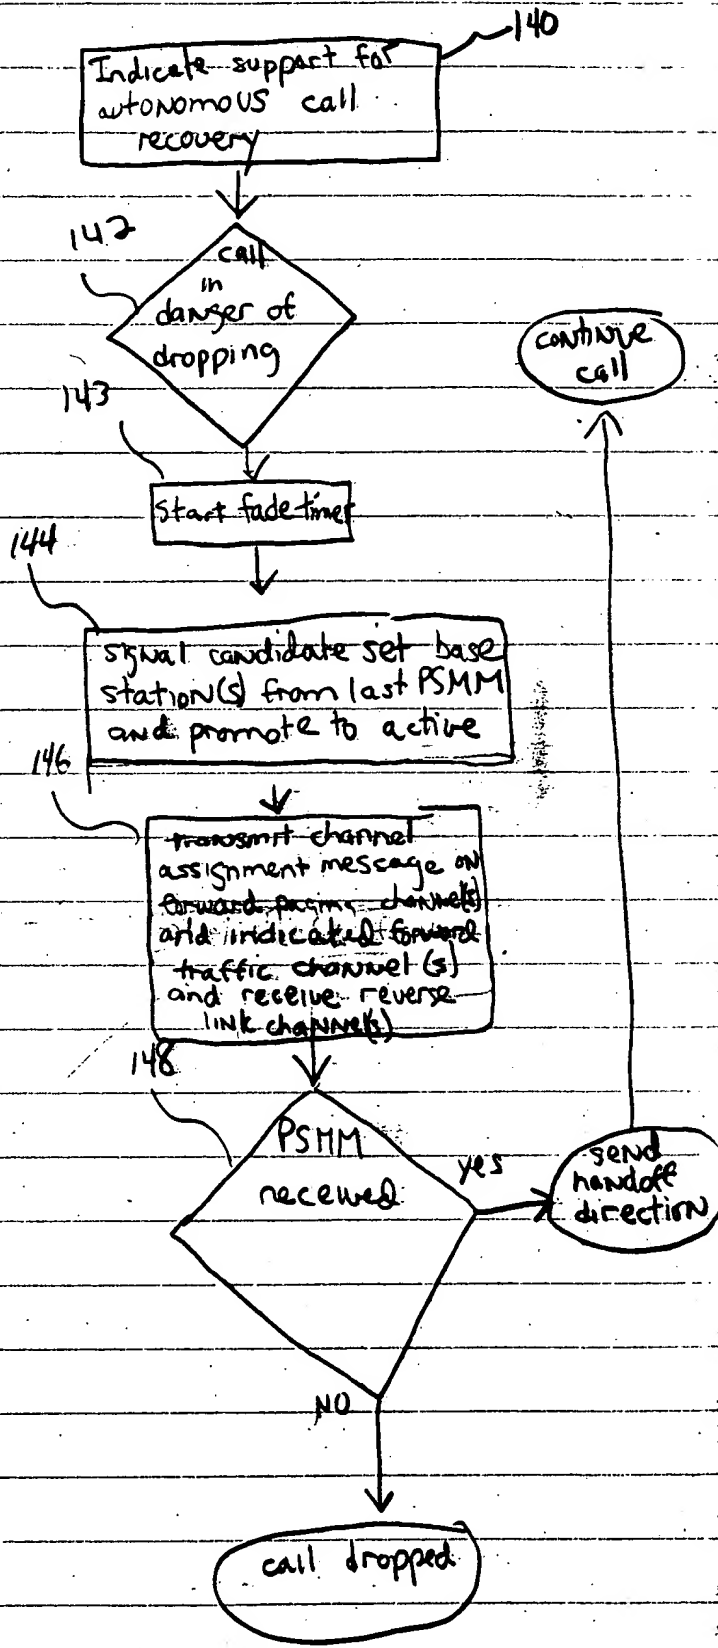 140
Indicate support for
autonomous call
recovery
142
call
in
danger of
dropping
continue
call
143
start fade timer
144
signal candidate set base
station(s) from last PSMM
and promote to active
146
transmit channel
assignment message on
forward paging channel(s)
and indicated forward
traffic channel(s)
and receive reverse
link channel(s)
148
PSMM
received
yes
send
handoff
direction
NO
call dropped